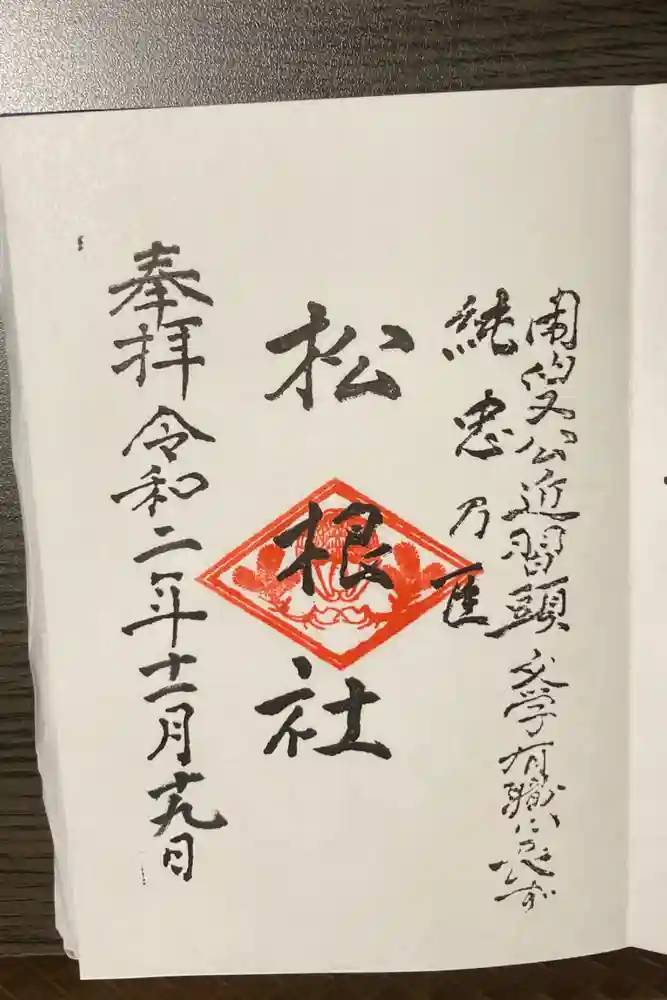 閑叟公近習頭 文学有職に長ず
純忠乃臣
松根社
奉拝 令和二年十一月十九日